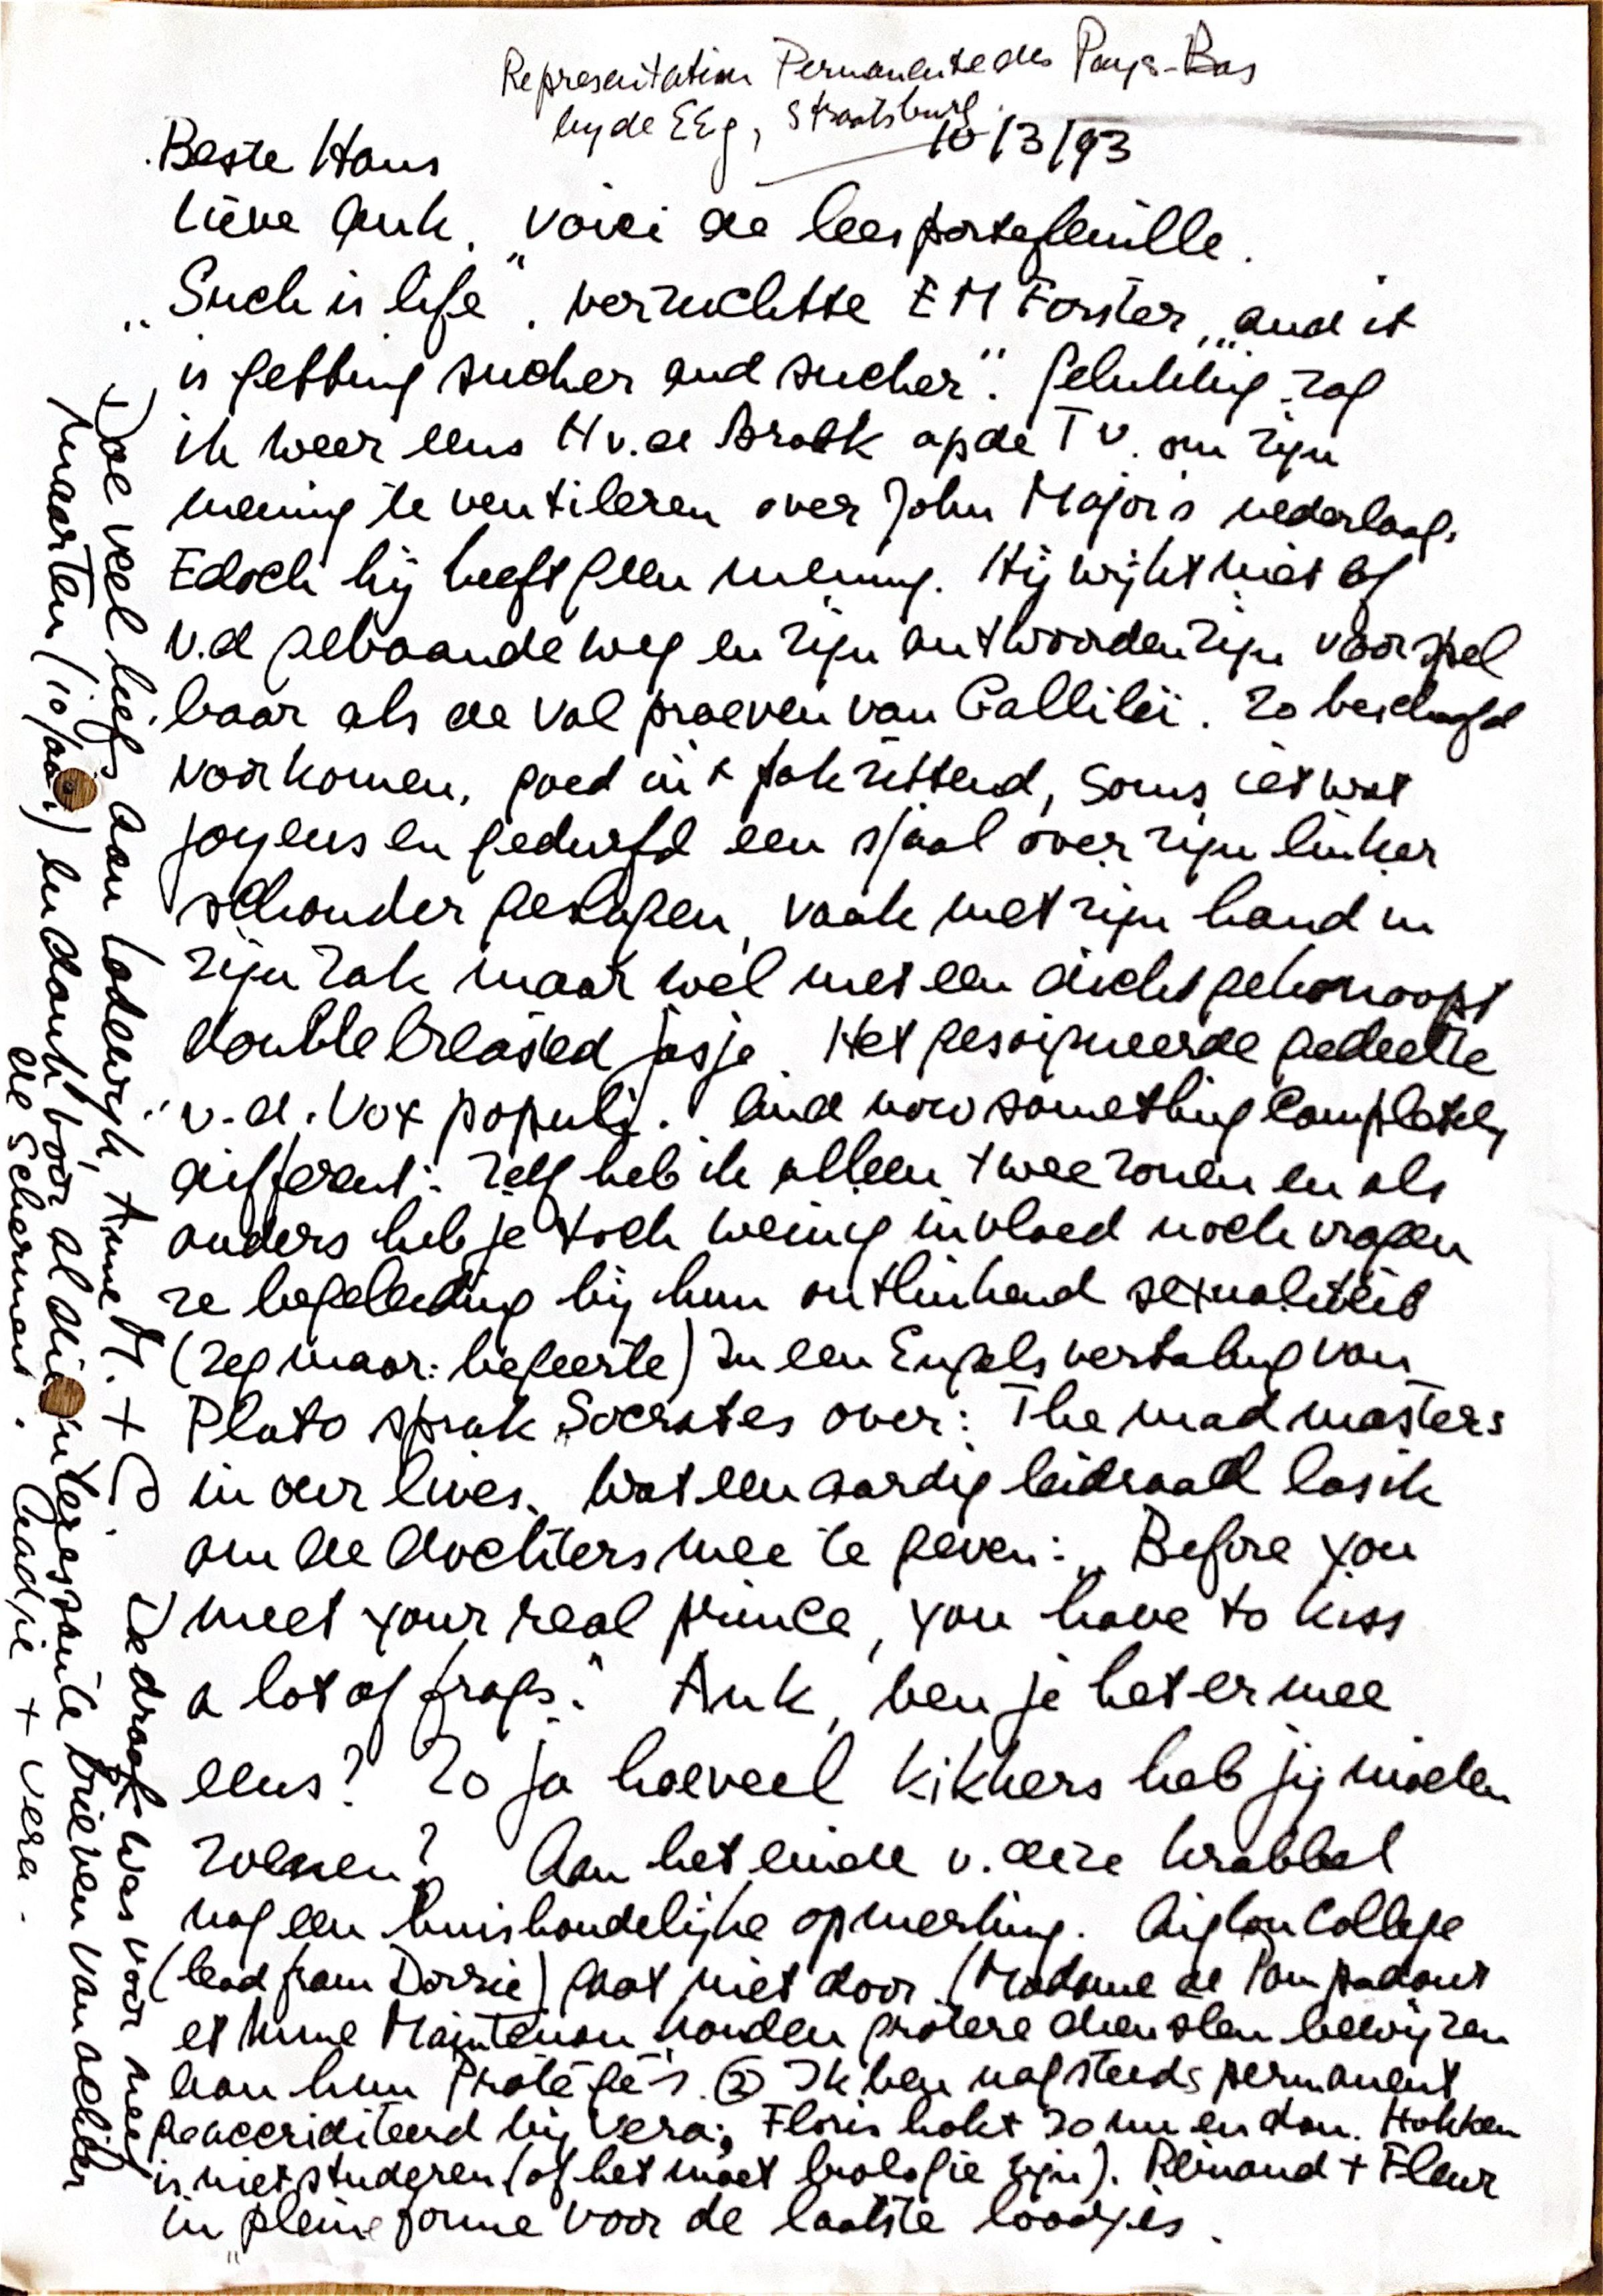 Representation Permanente des Pays-Bas
by de EEg, Straatsburg.
10/3/93
Beste Hans
Lieve Auk. Voici de leesportefeuille.
"Such is life". verzuchtte EM Forster, "and it
is getting sucher and sucher". Gelukkig zag
ik weer eens H v.de Broek op de TV. om zijn
mening te ventileren over John Major's nederlaag.
Edoch hij heeft geen mening. Hij wijkt niet af
v.d gebaande weg en zijn antwoorden zijn voorspel
baar als de val proeven van Gallileï. Zo beschaafd
voorkomen, goed in 't pak zittend, soms ietwat
joyeus en gedurfd een sjaal over zijn linker
schouder geslagen, vaak met zijn hand in
zijn zak maar wel met een dicht geknoopt
double breasted jasje. Het gesoigneerde gedeelte
v.d. Vox populi. "And now something completely
different": Zelf heb ik alleen twee zonen en als
ouders heb je toch weinig invloed noch vragen
ze begeleiding bij hun ontluikend sexualiteit
(zeg maar: begeerte) In een Engels vertaling van
Plato sprak Socrates over: "The mad masters
in our lives. Wat een aardig leidraad las ik
om de dochters mee te geven: "Before you
meet your real prince, you have to kiss
a lot of frogs." Auk, ben je het er mee
eens? Zo ja hoeveel kikkers heb jij moeten
zoenen? Aan het einde v. deze krabbel
nog een huishoudelijke opmerking. Aiglon College
(lead from Dorrie) gaat niet door. (Madame de Pompadour
et Mme Maintenon konden grotere diensten bewijzen
aan hun Protégé's. ② Ik ben nog steeds permanent
geaccrediteerd bij Vera; Floris hokt zo nu en dan. Hokken
is niet studeren (of het moet biologie zijn). Reinoud + Fleur
in "pleine forme voor de laatste loodjes.
Doe veel liefs aan Lodewijk, Anne M. +
Maarten (10 jaar) en dank voor al die interessante brieven van achter
de Schermen. Aadje + Vera.
Gedraaf was voor